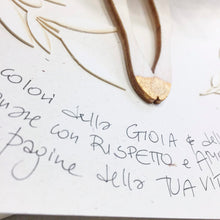 colori della GIOIA e del
con RISPETTO e A
pagine della TUA VIT